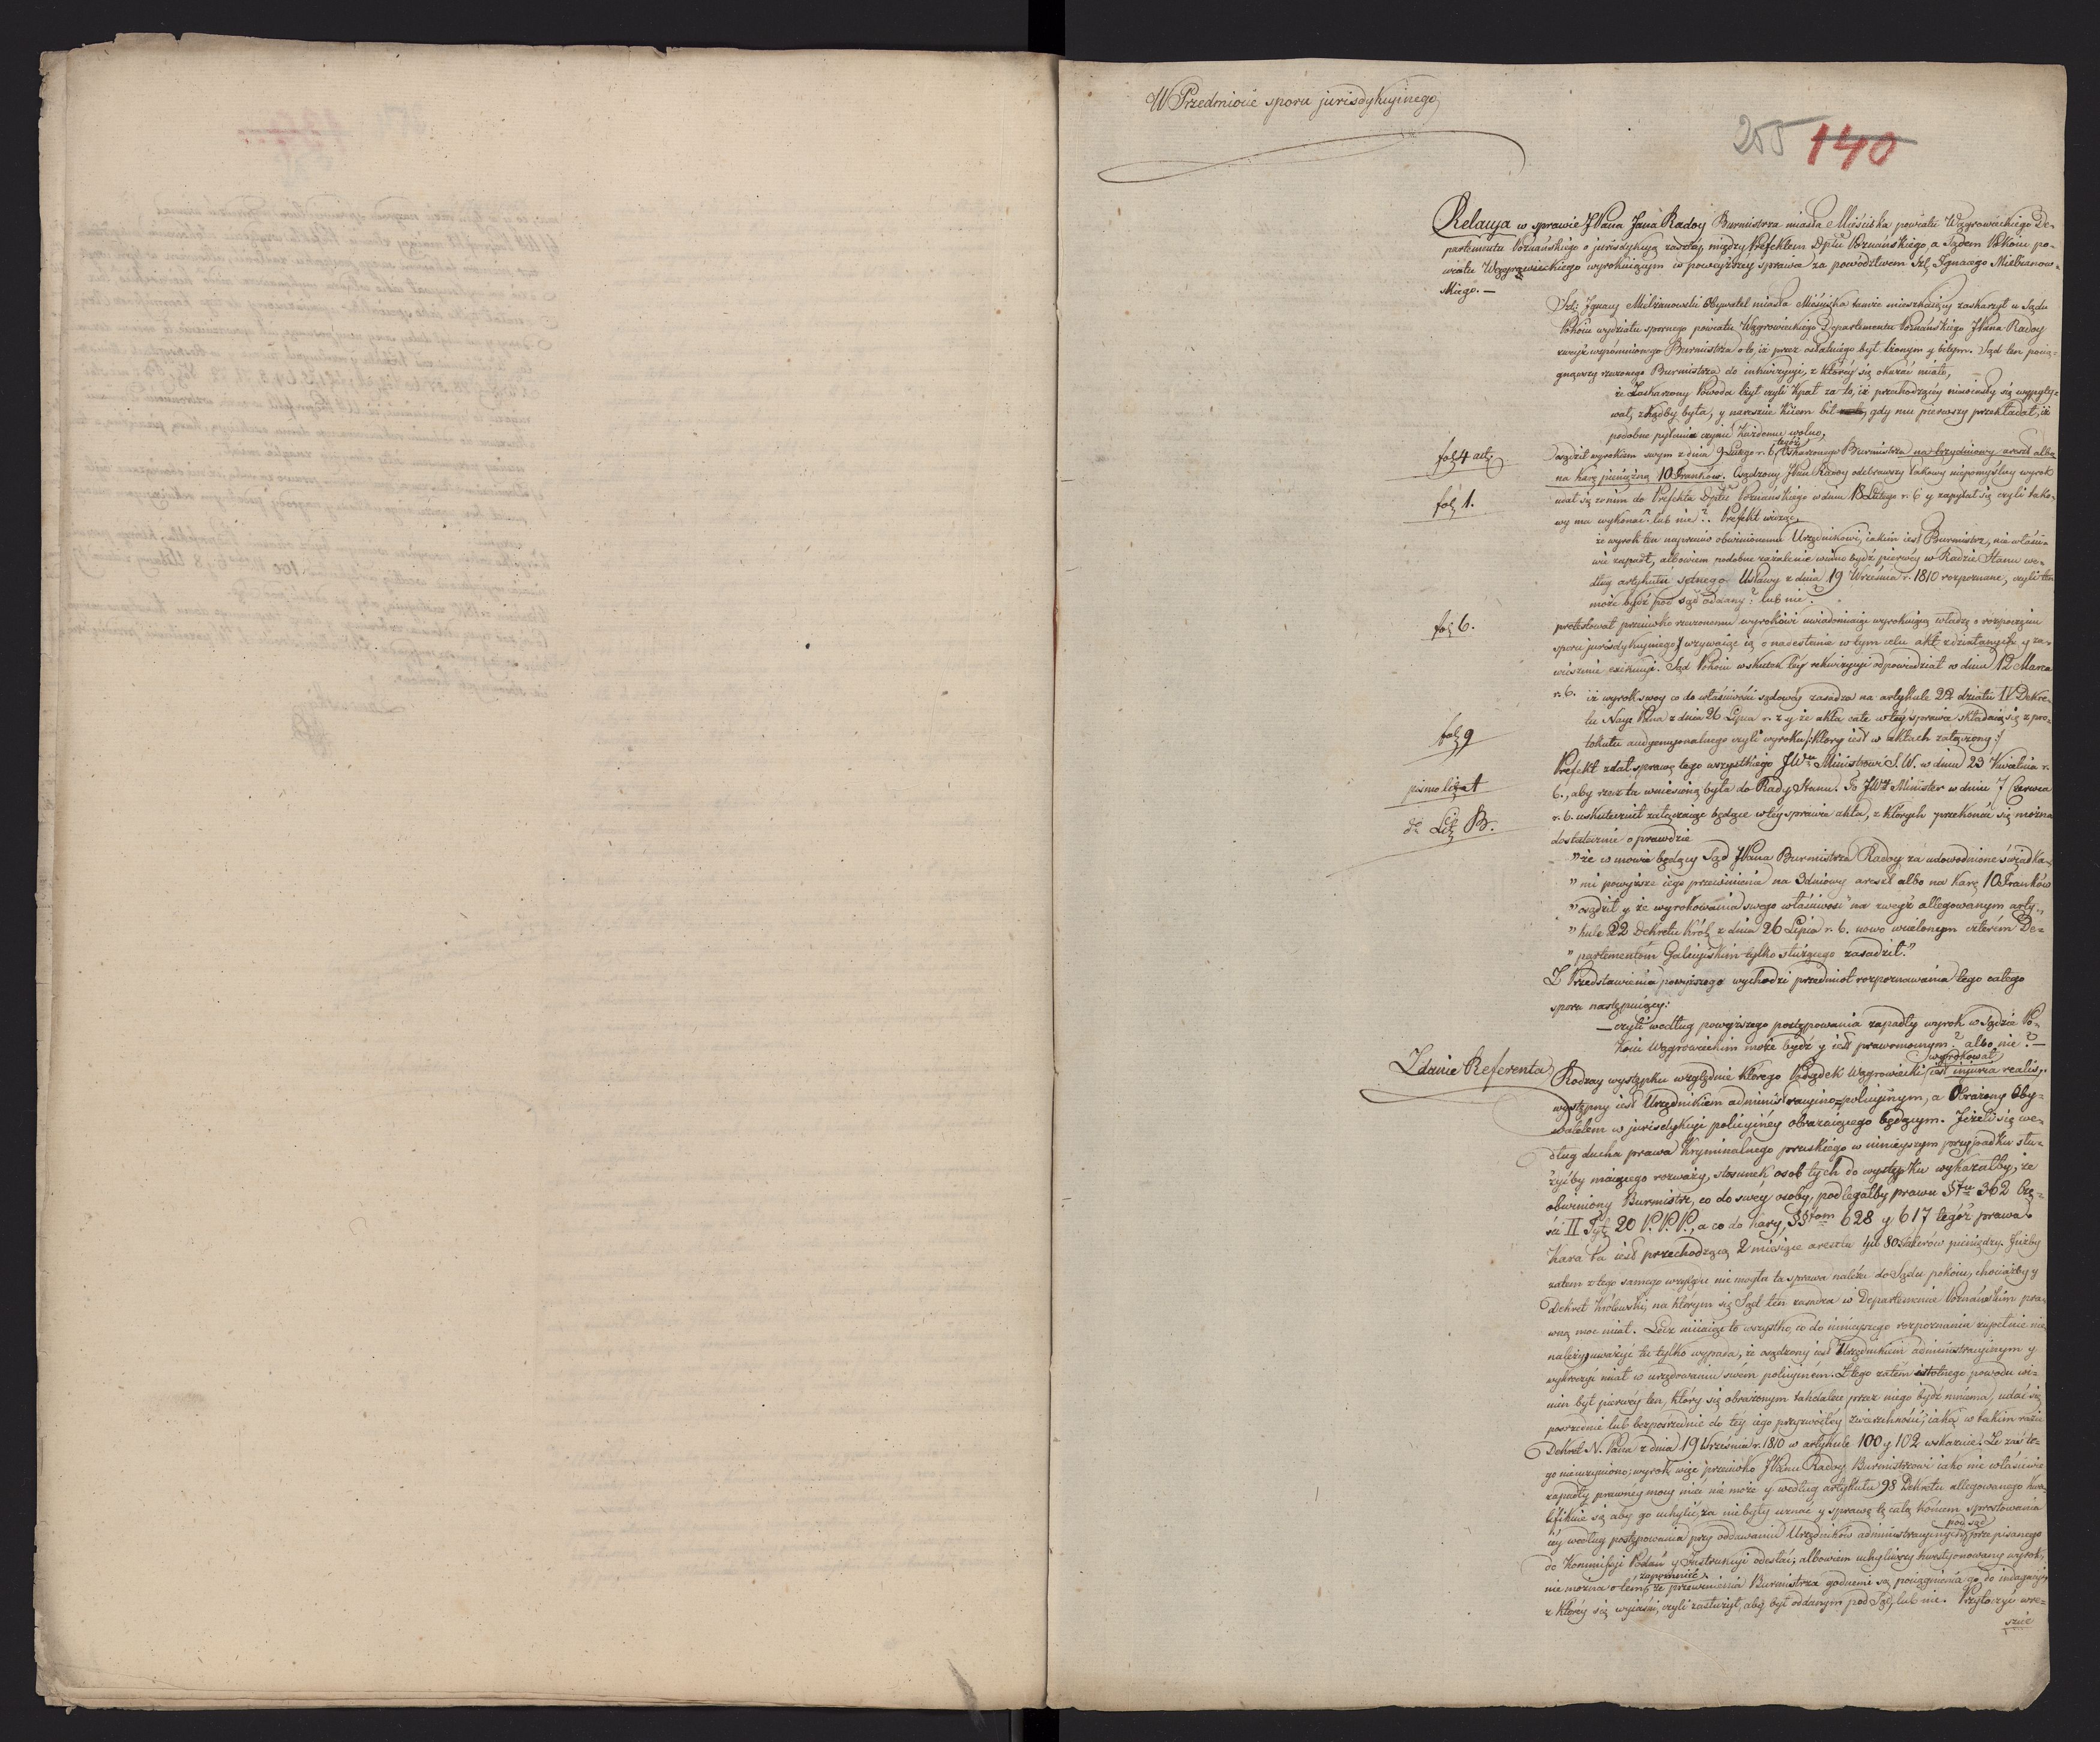 W Przedmiocie sporu jurisdykcyinego
255 140
Relacya w sprawie JPana Jana Radoy Burmistrza miasta Mieściska powiatu Wągrowieckiego De-
partamentu Poznańskiego o jurisdykcyą zaszłey między Prefektem Dpttu Poznańskiego, a Sądem Pokoiu po-
wiatu Wągrowieckiego wyrokuiącym w powyższey sprawie za powództwem Szl. Ignacego Mielzianow-
skiego.—
Szl: Ignacy Milzianowski Obywatel miasta Mieściska tamże mieszkaiący zaskarżył u Sądu
Pokoiu wydziału spornego powiatu Wągrowieckiego Departamentu Poznańskiego JPana Radoy
zwyż wspomnionego Burmistrza o to, iż przez ostatniego był lżonym y bitym. Sąd ten pocią-
gnąwszy rzeczonego Burmistrza do inkwizycyi, z którey się okazać miało,
że Zaskarżony Powoda lżył czyli łaiał za to, iż przechodzącey niewiasty się wypyty-
wał, zkądby była, y nareszcie kiiem bił gdy mu pierwszy przekładał, iż
podobne pytania czynić każdemu wolno,
fol: 4 act:
osądził wyrokiem swym z dnia 9 Lutego r. b. tegoż Oskarżonego Burmistrza na trzydniowy areszt albo
na karę pieniężną 10 Franków. Osądzony JPan Radoy odebrawszy takowy niepomyślny wyrok
fol: 1.
udał się z nim do Prefekta Dpttu Poznańskiego w dniu 18 Lutego r. b. y zapytał się czyli tako-
wy ma wykonać? lub nie? Prefekt widząc,
że wyrok ten naprzeciw obwinionemu Urzędnikowi, iakim iest Burmistrz, nie właści-
wie zapadł, albowiem podobne zażalenie winno bydź pierwey w Radzie Stanu we-
dług artykułu setnego Ustawy z dnia 19 Września r. 1810 rozpoznane, czyli ten
może bydź pod sąd oddany? lub nie?
fol: 6.
protestował przeciwko rzeczonemu wyrokowi uwiadomiaiąc wyrokuiącą władzę o rozpoczęciu
sporu jurisdykcyinego y wzywaiąc ią o nadesłanie w tym celu akt zdziałanych y za-
wieszenie exekucyi. Sąd Pokoiu wskutek tey rekwizycyi odpowiedział w dniu 12 Marca
r. b. iż wyrok swoy co do właściwości sądowey zasadza na artykule 22 działu IV Dekre-
tu Nayż. Pana z dnia 26 Lipca r. z. y że akta całe w tey sprawie składaią się z pro-
fol: 9
tokułu audyencyonalnego czyli wyroku /:który iest w aktach załączony:/
Prefekt zdał sprawę tego wszystkiego JWu Ministrowi S.W. w dniu 23 Kwietnia r.
pismo lit: A
b., aby rzecz ta wniesioną była do Rady Stanu. To JWy Minister w dniu 7 Czerwca
do Lit: B.
r. b. uskutecznił załączaiąc będące w tey sprawie akta, z których przekonać się można
dostatecznie o prawdzie
"że w mowie będący Sąd JPana Burmistrza Radoy za udowodnione świadka-
"mi powyższe iego przewinienia na 3dniowy areszt albo na karę 10 Franków
"osądził y że wyrokowania swego właściwość na zwyż allegowanym arty-
"kule 22 Dekretu Król: z dnia 26 Lipca r. b. nowo wcielonym czterem De-
"partamentom Galicyiskim tylko służącego zasadził."
Z Przedstawienia powyższego wychodzi przedmiot rozpoznawania tego całego
sporu następuiący:
— czyli według powyższego postępowania zapadły wyrok w Sądzie Po-
koiu Wągrowieckim może bydź y iest prawomocnym? albo nie?—
Zdanie Referenta
Rodzay występku względnie którego Podsądek Wągrowiecki wyrokował iest injuria realis,
występny iest Urzędnikiem administracyino-policyinym, a Obrażony Oby-
watelem w jurisdykcyi policyiney obrażaiącego będącym. Jeżeli się we-
dług ducha prawa kryminalnego pruskiego w ninieyszym przypadku słu-
żyćby maiącego rozważy, stosunek osób tych do występku wykazałby, że
obwiniony Burmistrz, co do swey osoby, podlegałby prawu §fu 362 Czę-
ści II Tyt: 20 P.P.P., a co do kary, §§fom 628 y 617 tegoż prawa.
Kara ta iest przechodzącą 2 miesiące aresztu lub 80 Talerów pieniędzy. Jużby
zatem z tego samego względu nie mogła ta sprawa należeć do Sądu pokoiu, chociażby y
Dekret Królewski, na którym się Sąd ten zasadza w Departamencie Poznańskim pra-
wną moc miał. Lecz miiaiąc to wszystko, co do ninieyszego rozpoznania zupełnie nie
należy, uważyć tu tylko wypada, że osądzony iest Urzędnikiem administracyinym y
wykroczyć miał w urzędowaniu swém policyiném. Z tego zatém istotnego powodu wi-
nien był pierwey ten, który się obrażonym takdalece przez niego bydź mniema, udać się
pośrednie lub bezpośrednie do tey iego przyzwoitey zwierzchności, iaką w takim razie
Dekret N. Pana z dnia 19 Września r. 1810 w artykule 100 y 102 wskazuie. Że zaś te-
go nieuczyniono; wyrok więc przeciwko JPanu Radoy Burmistrzowi iako nie właściwie
zapadły prawney mocy mieć nie może y według artykułu 98 Dekretu allegowanego kwa-
lifikuie się aby go uchylić, za niebyły uznać y sprawę tę całą końcem sprostowania
iey według postępowania przy oddawaniu Urzędników administracyinych pod sąd przepisanego
do Kommissyi Podań y Instrukcyi odesłać; albowiem uchyliwszy kwestyonowany wyrok,
nie można o tém zapomnieć, że przewinienia Burmistrza godnemi są pociągnienia go do indagacyi,
z którey się wyiaśni, czyli zasłużył, aby był oddanym pod Sąd, lub nie. Przytoczyć wre-
szcie